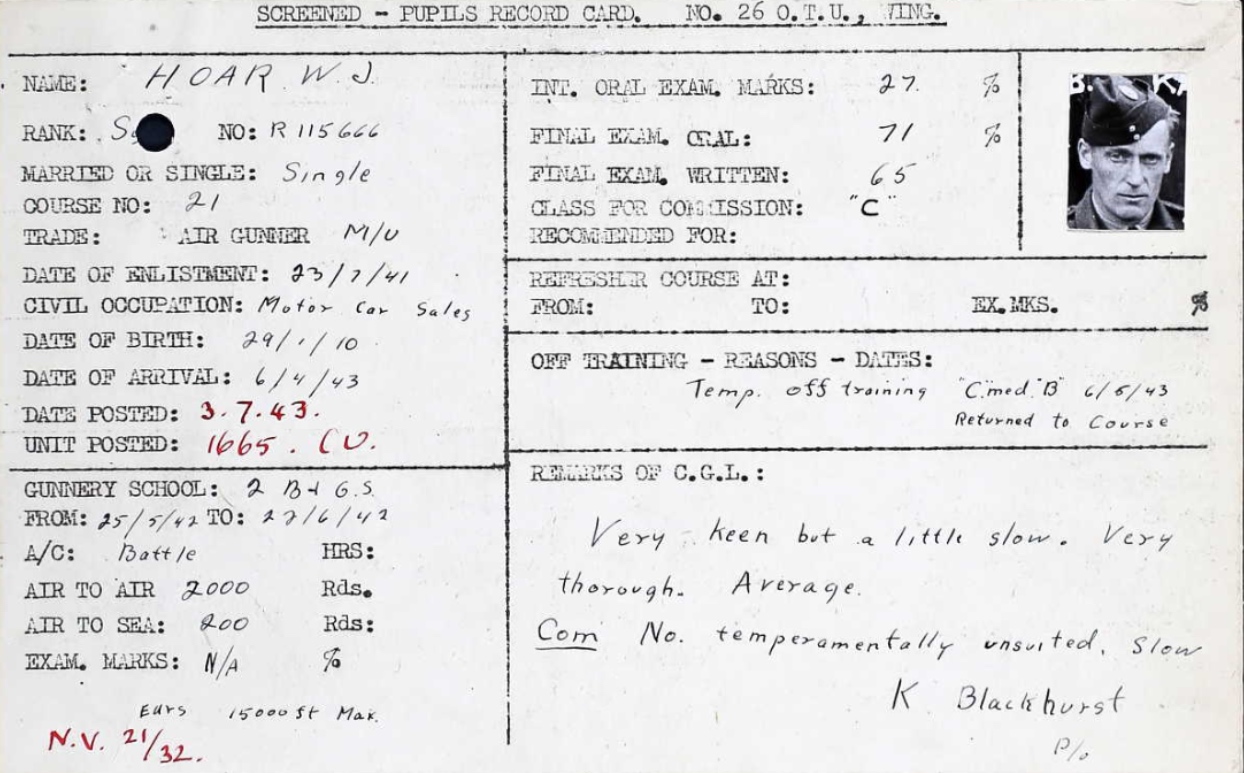 SCREENED - PUPILS RECORD CARD. NO. 26 O.T.U., WING.
NAME: HOAR W. J.
RANK: NO: R 115666
MARRIED OR SINGLE: Single
COURSE NO: 21
TRADE: AIR GUNNER M/U
DATE OF ENLISTMENT: 23/7/41
CIVIL OCCUPATION: Motor Car Sales
DATE OF BIRTH: 29/1/10
DATE OF ARRIVAL: 6/4/43
DATE POSTED: 3.7.43.
UNIT POSTED: 1665. CU.
GUNNERY SCHOOL: 2 B & G.S.
FROM: 25/5/42 TO: /6/42
A/C: Battle HRS:
AIR TO AIR 2000 Rds.
AIR TO SEA: 200 Rds:
EXAM. MARKS: N/A %
Ears 15000 ft Max.
N.V. 21/32.
INT. ORAL EXAM. MARKS: 27. %
FINAL EXAM. ORAL: 71 %
FINAL EXAM. WRITTEN: 65
CLASS FOR COMMISSION: "C"
RECOMMENDED FOR:
REFRESHER COURSE AT:
FROM: TO: EX.MKS. %
OFF TRAINING - REASONS - DATES:
Temp. off training "C.med.B" 6/5/43
Returned to Course
REMARKS OF C.G.L.:
Very keen but a little slow. Very
thorough. Average.
Com No. temperamentally unsuited. Slow
K Blackhurst
P/o